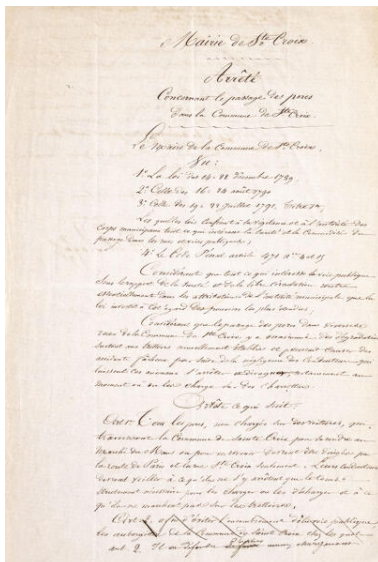 Mairie de Ste Croix
Arrêté
Concernant le passage des porcs
dans la Commune de Ste Croix.
Le Maire de la Commune de Ste Croix,
Vu :
1º La loi des 14-22 Décembre 1789
2º Celle des 16-24 août 1790
3º Celle des 19-22 Juillet 1791, titre 1er,
Lesquelles lois confient à la vigilance et à l'autorité des
Corps municipaux tout ce qui intéresse la sureté et la Commodité du
passage dans les rues et voies publiques;
4º Le Code Pénal article 471 nº 4 et 15
Considérant que tout ce qui intéresse la voie publique
sous le rapport de la sureté et de la libre circulation rentre
essentiellement dans les attributions de l'autorité municipale que la
loi investit à cet égard des pouvoirs les plus étendus;
Considérant que le passage des porcs dans diverses
rues de la Commune de Ste Croix y a occasionné des dégradations
surtout aux trottoirs nouvellement établis et peuvent causer des
accidents fâcheux par suite de la négligence des Conducteurs qui
laissent ces animaux s'arrêter et notamment au
moment où on les charge sur des charettes
Arrête ce qui suit:
Art 1er Tous les porcs, non chargés sur des voitures, qui
traverseront la Commune de Sainte Croix pour se rendre au
Marché du Mans ou pour en revenir devront être dirigés par
la route de Paris et la rue Ste Croix seulement. Leurs conducteurs
devront veiller à ce qu'ils ne s'y arrêtent que le temps
strictement nécessaire pour les charger ou les décharger et à ce
qu'ils ne marchent pas sur les trottoirs.
Art 2. afin d'éviter l'encombrement de la voie publique
les aubergistes de la Commune de Sainte Croix chez lesquels
art. 2. Il est défendu